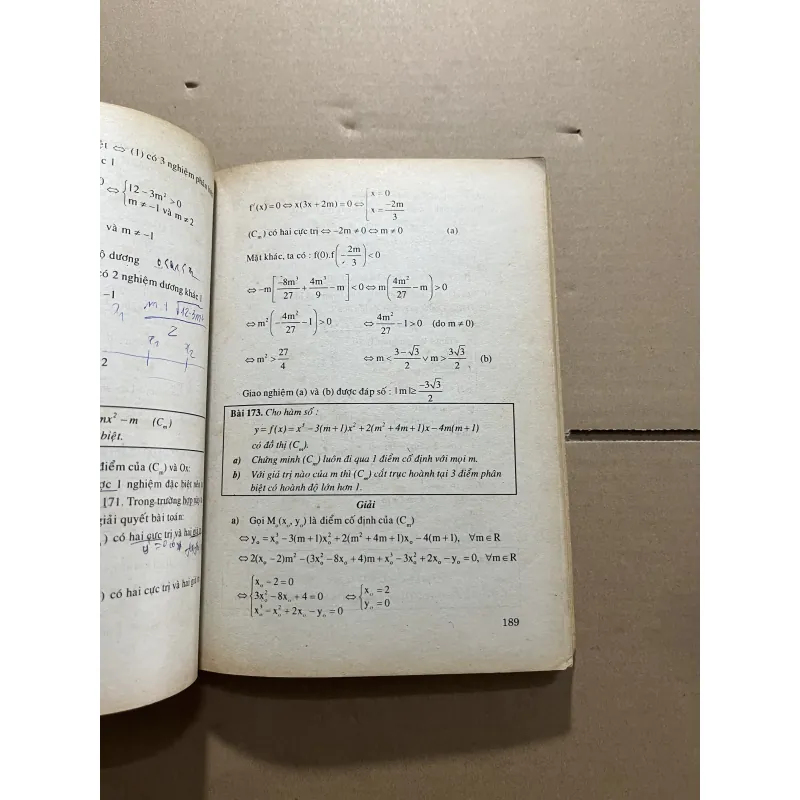 ệt ⇔ (1) có 3 nghiệm phân
ác 1
0 ⇔ {12 − 3m² > 0
m ≠ −1 và m ≠ 2
và m ≠ −1
ộ dương
có 2 nghiệm dương khác 1
−1
x₁
2
x₁
x₂
2
mx² − m (Cₘ)
biệt.
điểm của (Cₘ) và Ox:
ược 1 nghiệm đặc biệt nên
171. Trong trường hợp này
giải quyết bài toán:
) có hai cực trị và hai giá
) có hai cực trị và hai giá
f'(x) = 0 ⇔ x(3x + 2m) = 0 ⇔ [x = 0
x = −2m/3
(Cₘ) có hai cực trị ⇔ −2m ≠ 0 ⇔ m ≠ 0 (a)
Mặt khác, ta có : f(0).f(−2m/3) < 0
⇔ −m[−8m³/27 + 4m³/9 − m] < 0 ⇔ m(4m²/27 − m) > 0
⇔ m²(−4m²/27 − 1) > 0 ⇔ 4m²/27 − 1 > 0 (do m ≠ 0)
⇔ m² > 27/4 ⇔ m < 3−√3/2 ∨ m > 3√3/2 (b)
Giao nghiệm (a) và (b) được đáp số : |m| ≥ −3√3/2
Bài 173. Cho hàm số :
y = f(x) = x³ − 3(m+1)x² + 2(m² + 4m + 1)x − 4m(m+1)
có đồ thị (Cₘ).
a) Chứng minh (Cₘ) luôn đi qua 1 điểm cố định với mọi m.
b) Với giá trị nào của m thì (Cₘ) cắt trục hoành tại 3 điểm phân
biệt có hoành độ lớn hơn 1.
Giải
a) Gọi Mₒ(xₒ, yₒ) là điểm cố định của (Cₘ)
⇔ yₒ = xₒ³ − 3(m+1)xₒ² + 2(m² + 4m + 1)xₒ − 4(m+1), ∀m ∈ R
⇔ 2(xₒ − 2)m² − (3xₒ² − 8xₒ + 4)m + xₒ³ − 3xₒ² + 2xₒ − yₒ = 0, ∀m ∈ R
⇔ {xₒ − 2 = 0
3xₒ² − 8xₒ + 4 = 0
xₒ³ − xₒ² + 2xₒ − yₒ = 0 ⇔ {xₒ = 2
yₒ = 0
189